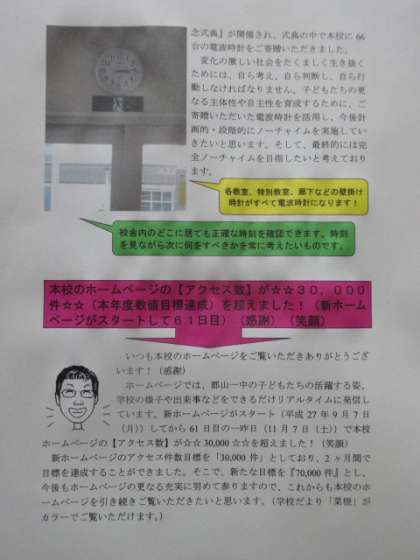 念式典』が開催され、式典の中で本校に 66
台の電波時計をご寄贈いただきました。
変化の激しい社会をたくましく生き抜く
ためには、自ら考え、自ら判断し、自ら行
動しなければなりません。子どもたちの更
なる主体性や自主性を育成するために、ご
寄贈いただいた電波時計を活用し、今後計
画的・段階的にノーチャイムを実施してい
きたいと思います。そして、最終的には完
全ノーチャイムを目指したいと考えており
ます。
各教室、特別教室、廊下などの壁掛け
時計がすべて電波時計になります！
校舎内のどこに居ても正確な時刻を確認できます。時刻
を見ながら次に何をすべきかを常に考えたいものです。
本校のホームページの【アクセス数】が☆☆３０，０００
件☆☆（本年度数値目標達成）を超えました！（新ホーム
ページがスタートして６１日目）（感謝）（笑顔）
いつも本校のホームページをご覧いただきありがとうござ
います！（感謝）
ホームページでは、郡山一中の子どもたちの活躍する姿、
学校の様子や出来事などをできるだけリアルタイムに発信し
ています。新ホームページがスタート（平成 27 年 9 月 7 日
（月））してから 61 日目の一昨日（11 月 7 日（土））で本校
ホームページの【アクセス数】が☆☆ 30,000 ☆☆を超えました！（笑顔）
新ホームページのアクセス件数目標を「30,000 件」としており、2 ヶ月間で
目標を達成することができました。そこで、新たな目標を『70,000 件』とし、
今後もホームページの更なる充実に努めて参りますので、これからも本校のホー
ムページを引き続きご覧いただきたいと思います。（学校だより「菜根」が
カラーでご覧いただけます。）